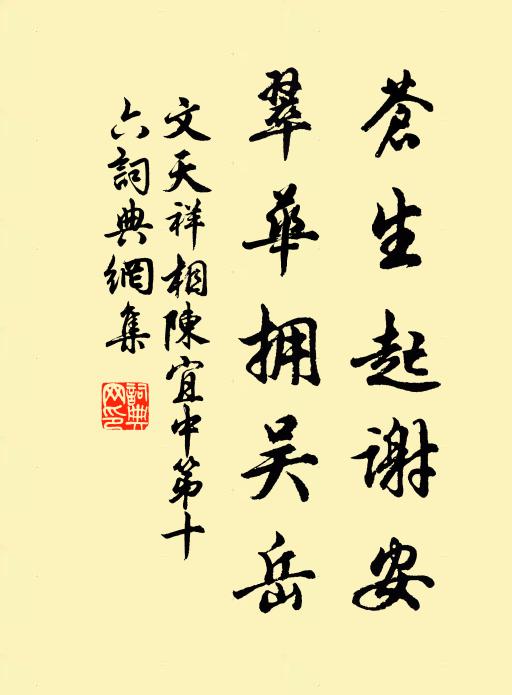 蒼生起谢安
翠華拥吴岳
文天祥相陳宜中第十
六詞典網集
詞典网印